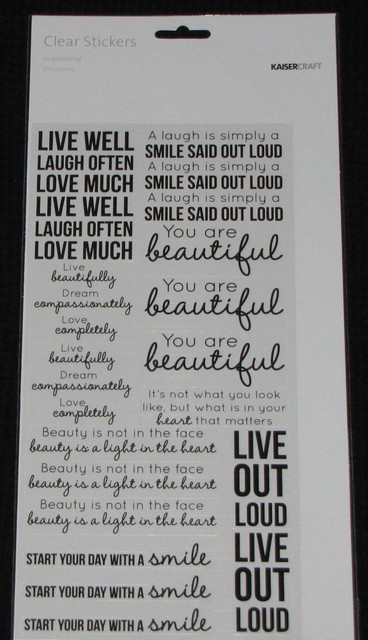 Clear Stickers
inspirational
KAISERCRAFT
LIVE WELL
LAUGH OFTEN
LOVE MUCH
LIVE WELL
LAUGH OFTEN
LOVE MUCH
A laugh is simply a
SMILE SAID OUT LOUD
A laugh is simply a
SMILE SAID OUT LOUD
A laugh is simply a
SMILE SAID OUT LOUD
You are
beautiful
You are
beautiful
You are
beautiful
Live
beautifully
Dream
compassionately
Love
completely
Live
beautifully
Dream
compassionately
Love
completely
It's not what you look
like, but what is in your
heart that matters
Beauty is not in the face
beauty is a light in the heart
Beauty is not in the face
beauty is a light in the heart
Beauty is not in the face
beauty is a light in the heart
LIVE
OUT
LOUD
LIVE
OUT
LOUD
START YOUR DAY WITH A smile
START YOUR DAY WITH A smile
START YOUR DAY WITH A smile